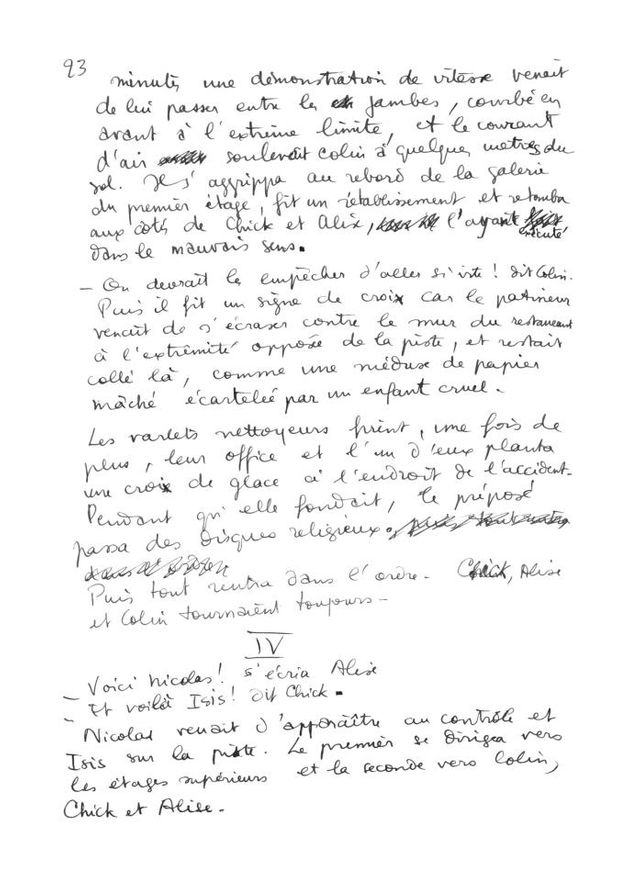 93
minutes, une démonstration de vitesse venait
de lui passer entre les jambes, courbé en
avant à l'extrême limite, et le courant
d'air soulevait Colin à quelques mètres du
sol. Il s'aggrippa au rebord de la galerie
du premier étage, fit un rétablissement et retomba
aux côtés de Chick et Alix, l'ayant exécuté
dans le mauvais sens.
- On devrait les empêcher d'aller si vite ! dit Colin.
Puis il fit un signe de croix car le patineur
venait de s'écraser contre le mur du restaurant
à l'extrémité opposée de la piste, et restait
collé là, comme une méduse de papier
mâché écartelée par un enfant cruel.
Les varlets nettoyeurs firent, une fois de
plus, leur office et l'un d'eux planta
une croix de glace à l'endroit de l'accident.
Pendant qu'elle fondait, le préposé
passa des disques religieux.
Puis tout rentra dans l'ordre. Chick, Alise
et Colin tournaient toujours -
IV
- Voici Nicolas ! s'écria Alise
- Et voilà Isis ! dit Chick.
Nicolas venait d'apparaître au contrôle et
Isis sur la piste. Le premier se dirigea vers
les étages supérieurs et la seconde vers Colin,
Chick et Alise.